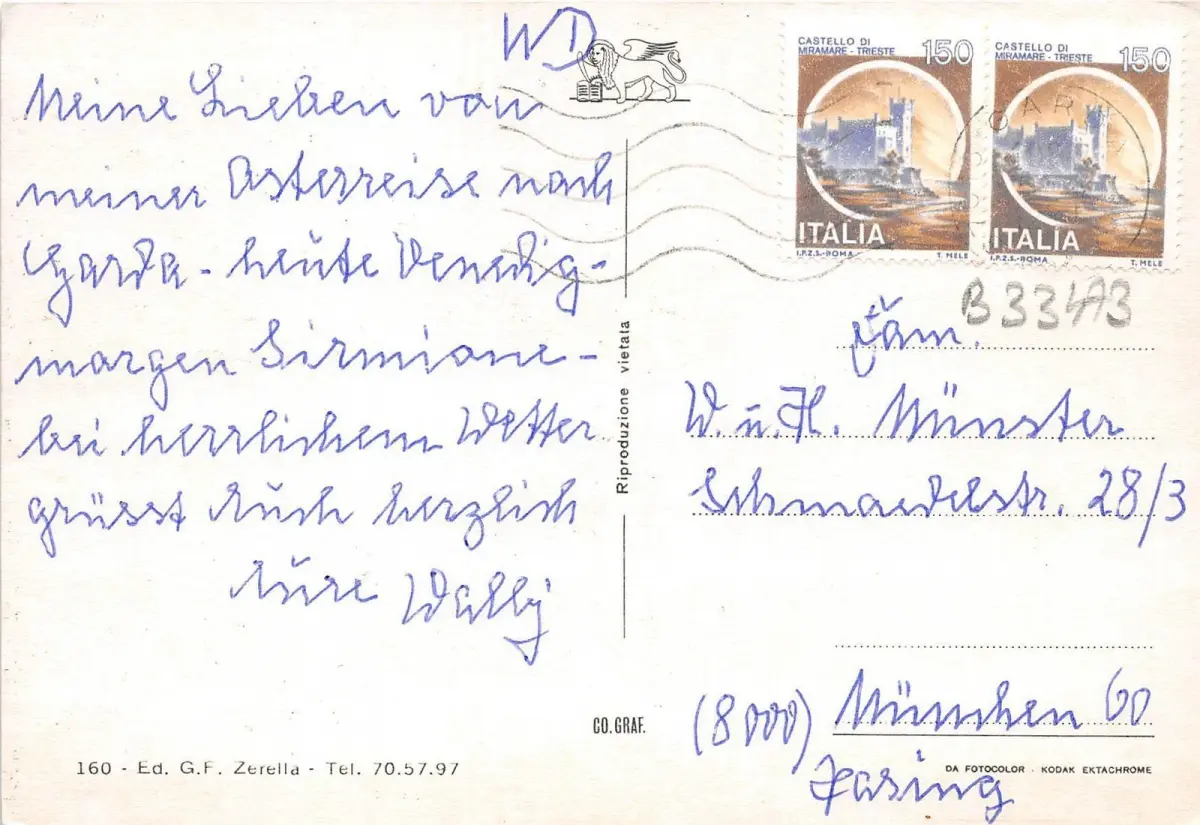 WD
Meine Lieben von
meiner Osterreise nach
Garda - heute Venedig -
morgen Sirmione -
bei herrlichem Wetter
grüsst Euch herzlich
Eure Wally
Riproduzione vietata
CO.GRAF.
160 - Ed. G.F. Zerella - Tel. 70.57.97
CASTELLO DI
MIRAMARE - TRIESTE
150
ITALIA
I.P.Z.S. - ROMA T. MELE
CASTELLO DI
MIRAMARE - TRIESTE
150
ITALIA
I.P.Z.S. - ROMA T. MELE
B33473
Fam.
W. u. H. Münster
Schmaedelstr. 28/3
(8000) München 60
Pasing
DA FOTOCOLOR · KODAK EKTACHROME